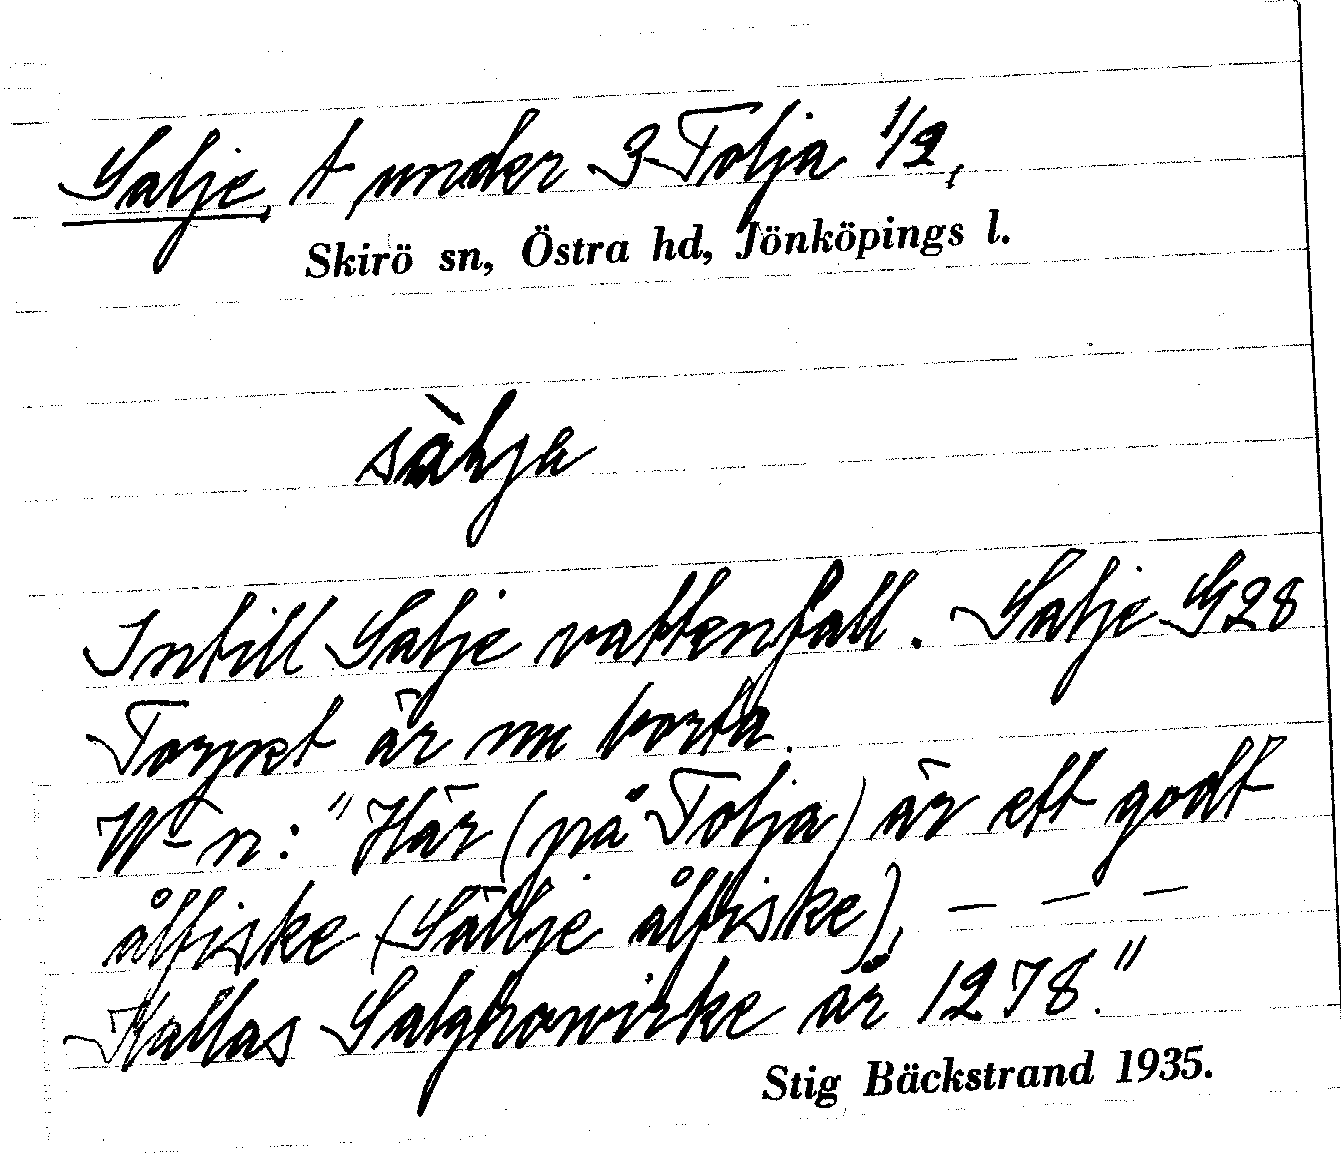 Salje, t under 3 Tolja 1/2,
Skirö sn, Östra hd, Jönköpings l.
sàlja
Intill Salje vattenfall. Salje G28
Torpet är nu borta.
W-n: "Här (på Tolja) är ett godt
ålfiske (Sällje ålfiske), – – –
Kallas Salghowirke år 1278."
Stig Bäckstrand 1935.